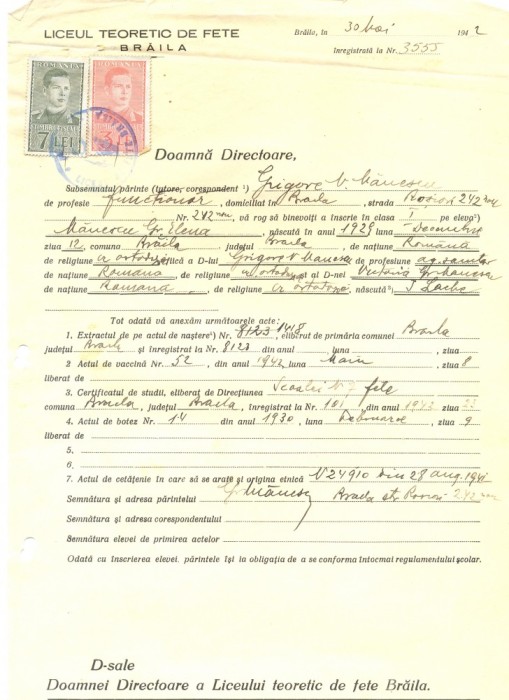 LICEUL TEORETIC DE FETE
BRĂILA
Brăila, in 30 Mai 1942
înregistrată la Nr. 3555
ROMANIA ROMANIA
7 LEI
Doamnă Directoare,
Subsemnatul părinte (tutore, corespondent ¹) Grigore V. Mănescu
de profesie funcționar, domiciliat în Braila, strada Roșiori 242 nou
Nr. 242 nou, vă rog să binevoiți a înscrie în clasa I pe eleva ²)
Mănescu Gr. Elena, născută în anul 1929 luna Decembrie
ziua 12, comuna Brăila județul Braila, de națiune Română
de religiune cr ortodoxă fiică a D-lui Grigore V Mănescu de profesiune ag. sanitar
de națiune Romana, de religiune cr. ortodoxă și al D-nei Victoria Gr. Mănescu
de națiune Romana, de religiune cr ortodoxă, născută ³) I Lache
Tot odată vă anexăm următoarele acte:
1. Extractul de pe actul de naștere ⁴) Nr. 8123 1418, eliberat de primăria comunei Braila
județul Braila și înregistrat la Nr. 8123 din anul luna ziua
2 Actul de vaccină Nr. 52, din anul 1942 luna Maiu ziua 8
liberat de
3. Certificatul de studii, eliberat de Direcțiunea Scoalei N 7 fete
comuna Braila, județul Braila, înregistrat la Nr. 101 din anul 1942 ziua 22
4. Actul de botez Nr. 14 din anul 1930, luna Februarie ziua 9
liberat de
5.
6.
7. Actul de cetățenie în care să se arate și origina etnică N 24910 din 28 aug. 1941
Semnătura și adresa părintelui Gr Mănescu Braila str Rosiori 242 nou
Semnătura și adresa corespondentului
Semnătura elevei de primirea actelor
Odată cu înscrierea elevei, părintele își ia obligația de a se conforma întocmai regulamentului școlar.
D-sale
Doamnei Directoare a Liceului teoretic de fete Brăila.